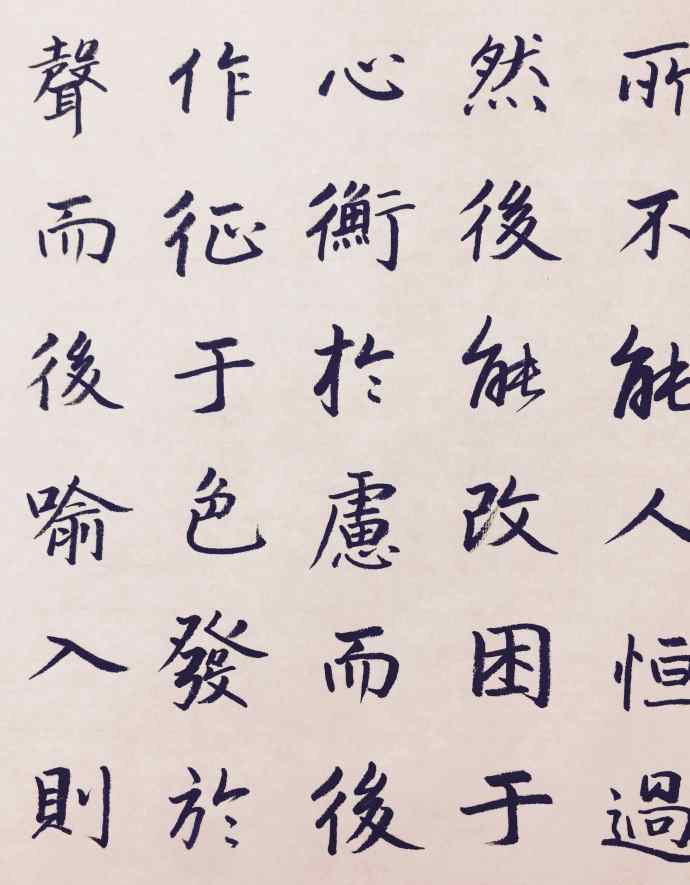 所不能人恒過
然後能改困于
心衡於慮而後
作征于色發於
聲而後喻入則